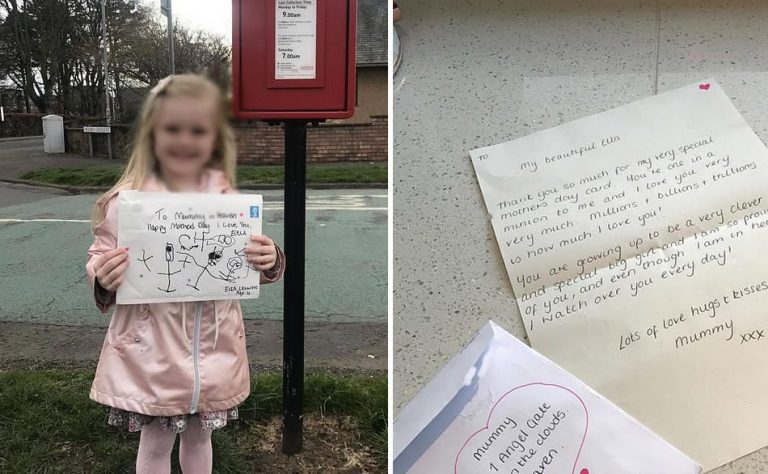 Last Collection Time
Monday to Friday
9.00am
Saturday
7.00am
To Mummy in Heaven
Happy Mothers Day I Love You,
ELLA
ELLA
Age
To
My beautiful Ella
Thank you so much for my very special
mothers day card. You're one in a
million to me and I love you very
very much. Millions + billions + trillions
is how much I love you!
You are growing up to be a very clever
and special big girl and I am so proud
of you, and even though I am in
I watch over you every day!
Lots of love hugs + kisses
Mummy
xxx
Mummy
1 Angel Gate
In the clouds
Heaven